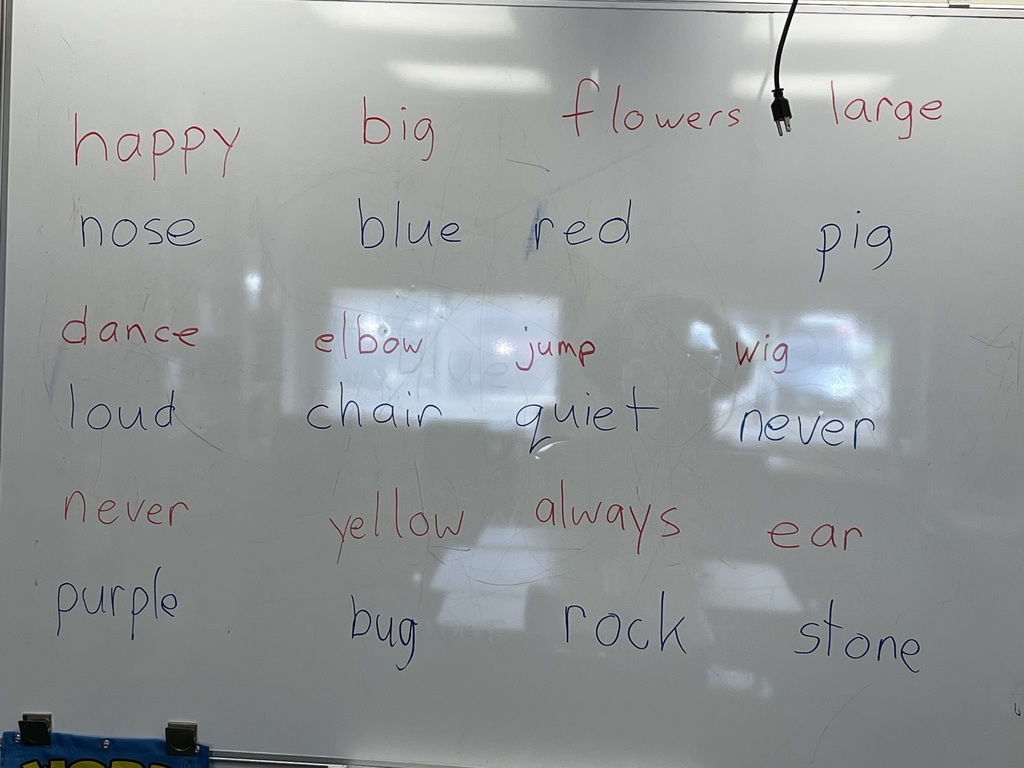 happy big flowers large
nose blue red pig
dance elbow jump wig
loud chair quiet never
never yellow always ear
purple bug rock stone